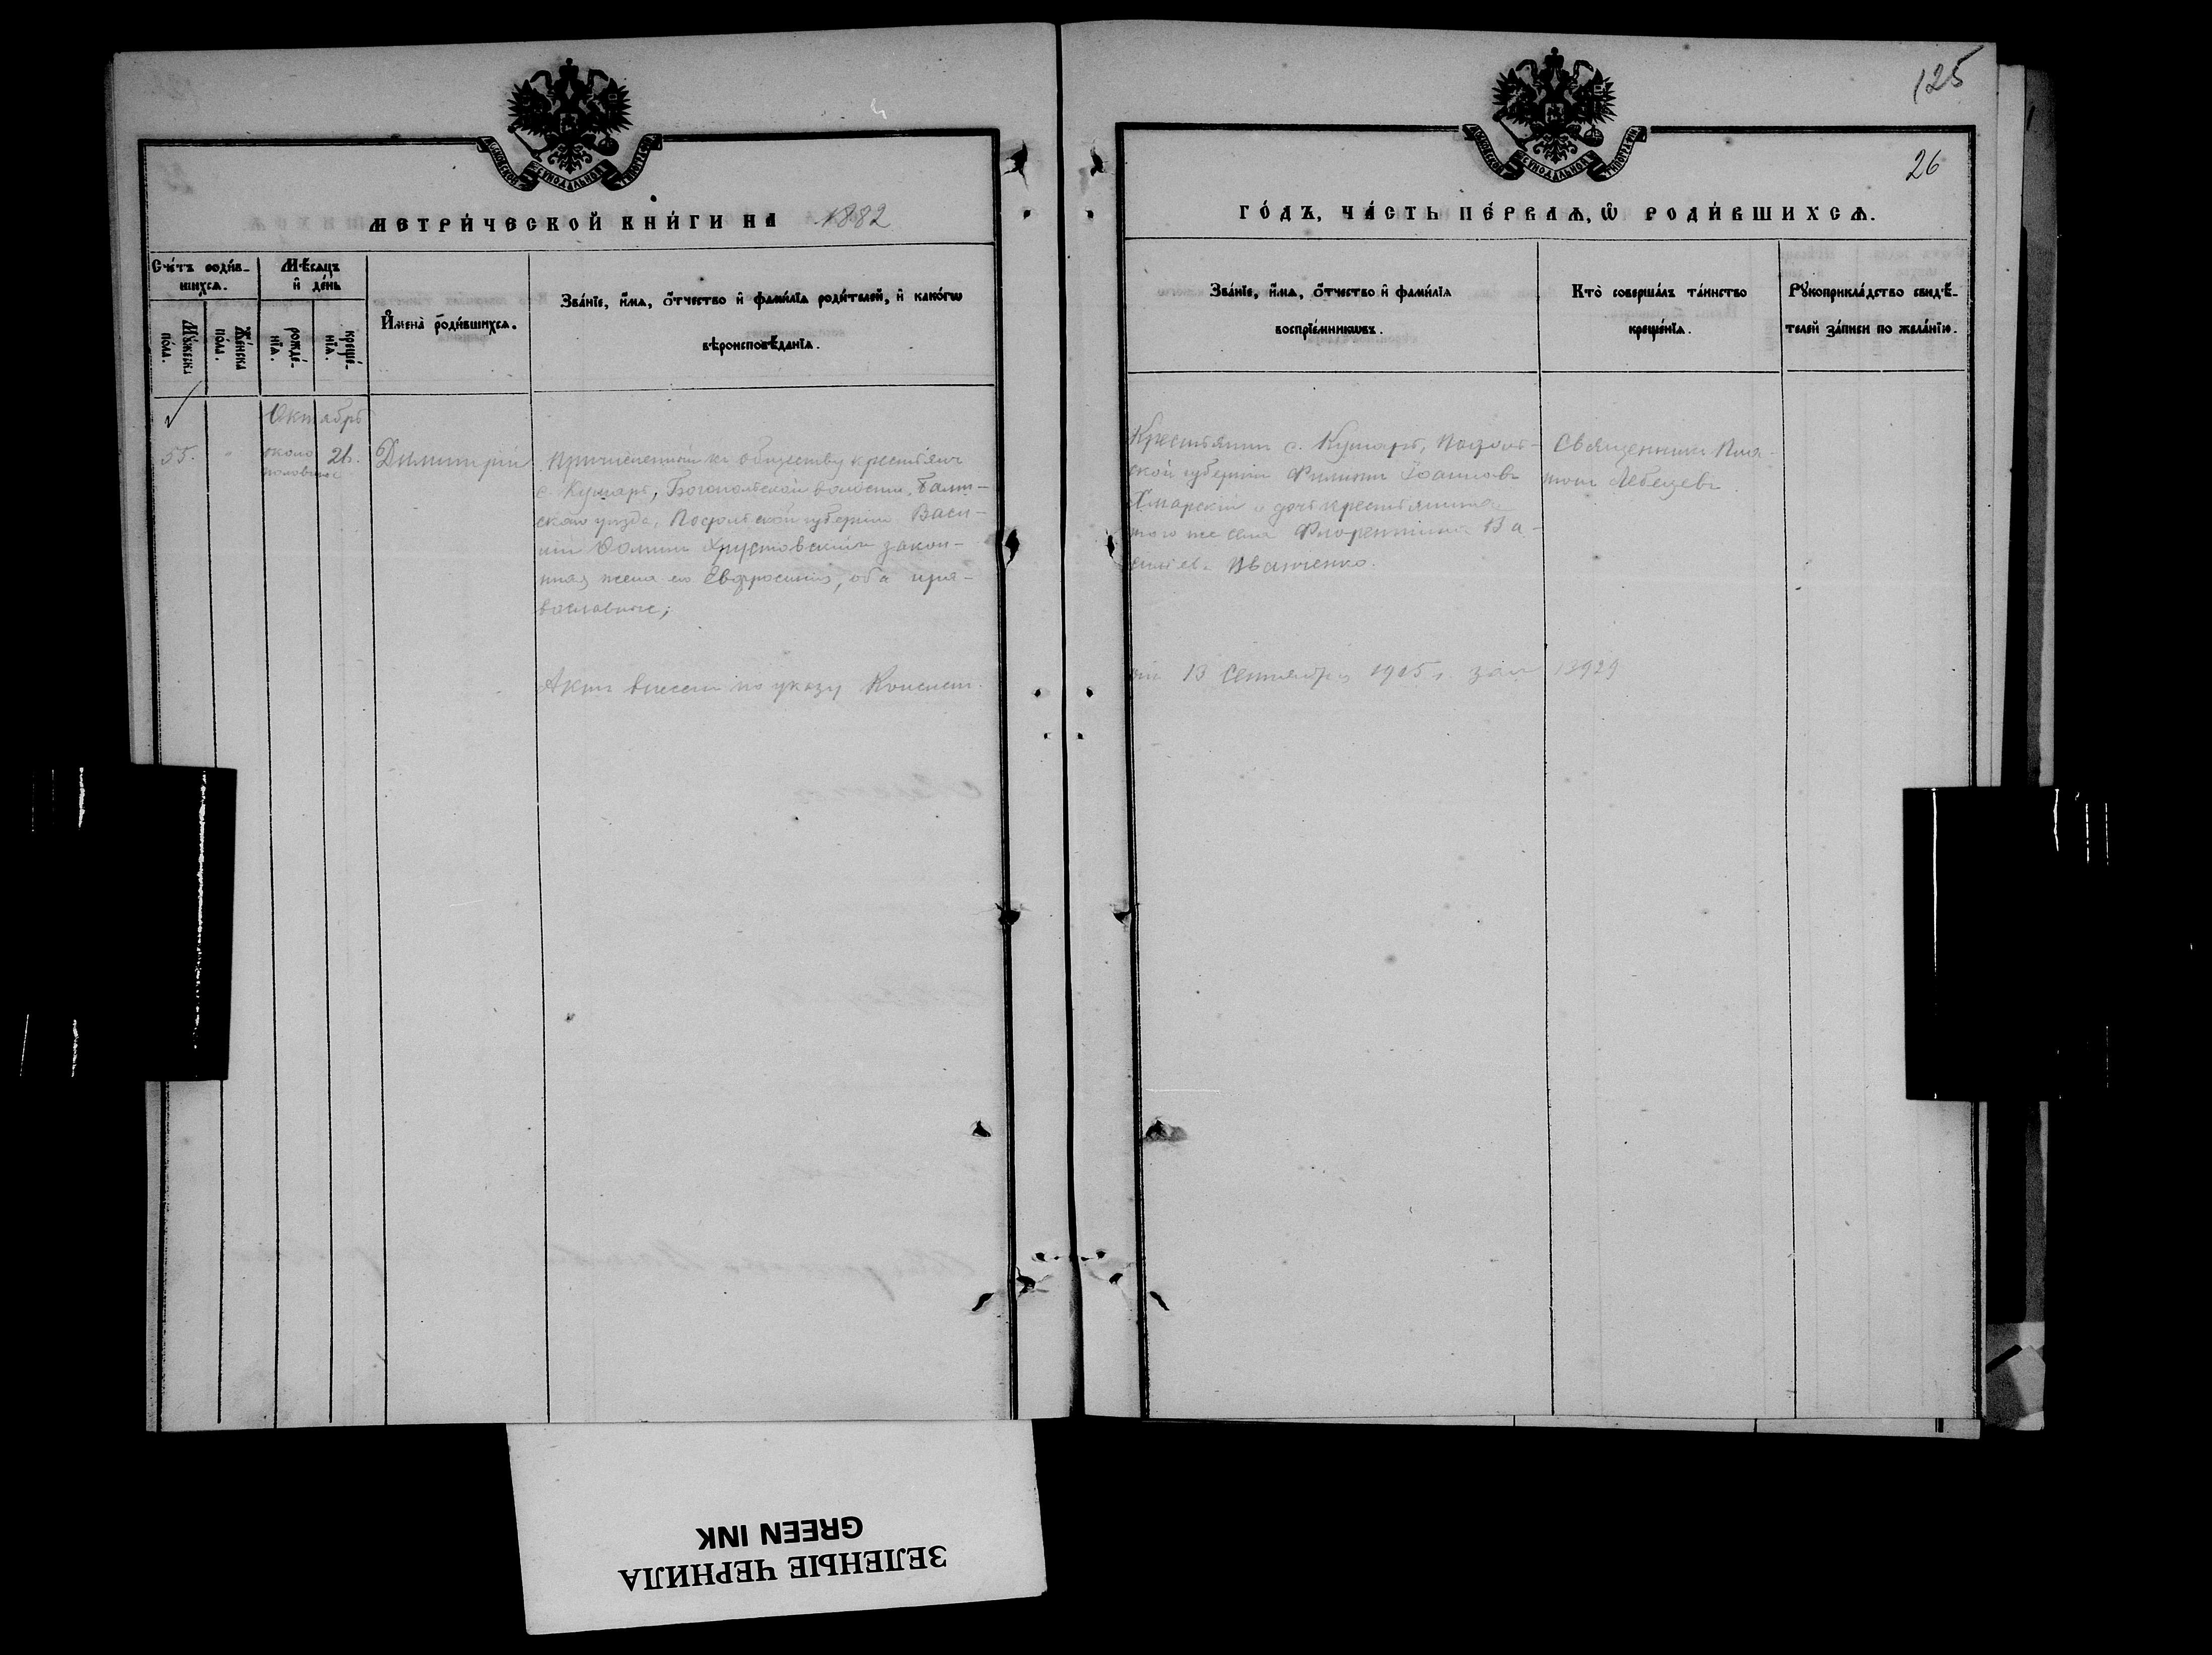 125
26
МОСКОВСКОЙ СѴНОДАЛЬНОЙ ТИПОГРАФІИ
МОСКОВСКОЙ СѴНОДАЛЬНОЙ ТИПОГРАФІИ
МЕТРИ́ЧЕСКОЙ КНИ́ГИ НА 1882
ГО́ДЪ, ЧА́СТЬ ПЕ́РВАѦ, Ѡ҆ РОДИ́ВШИХСѦ.
Сче́тъ роди́в-
шихсѧ.
Мѣ́сѧцъ
и҆ де́нь
Мꙋ́жеска
по́ла.
Же́нска
по́ла.
рожде́-
нїѧ.
креще́-
нїѧ.
И҆мена̀ роди́вшихсѧ.
Зва́нїе, и҆́мѧ, ѻ҆́тчество и҆ фами́лїѧ роди́телей, и҆ како́гѡ
вѣроисповѣ́данїѧ.
Зва́нїе, и҆́мѧ, ѻ҆́тчество и҆ фами́лїѧ
воспрїе́мникѡвъ.
Кто̀ соверша́лъ та́инство
креще́нїѧ.
Рꙋкоприкла́дство свидѣ́-
телей за́писи по жела́нїю.
Октябрь
55.
"
около
половины
26.
Димитрій
Причисленный къ обществу крестьянъ
с. Кумаръ, Богопольской волости, Балт-
скаго уѣзда, Подольской губерніи Васи-
лій Ѳоминъ Хрустовскій и закон-
ная жена его Евфросинія, оба пра-
вославные;
Крестьянинъ с. Кумаръ, Подоль-
ской губерніи Филиппъ Іоанновъ
Хмарскій и дочь крестьянина
того же села Флорентина Ва-
сильева Иванченко.
Священникъ Пла-
тонъ Лебедевъ
Актъ внесенъ по указу Консист.
отъ 13 Сентября 1905 г. за № 13929
ЗЕЛЕНЫЕ ЧЕРНИЛА
GREEN INK